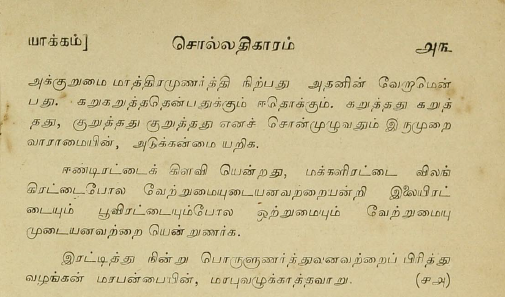 யாக்கம்] சொல்லதிகாரம் அ௩
அக்குறுமை மாத்திரமுணர்த்தி நிற்பது அதனின் வேறுமென்
பது. கறுகறுத்ததென்பதுக்கும் ஈதொக்கும். கறுத்தது கறுத்
தது, குறுத்தது குறுத்தது எனச் சொன்முழுவதும் இருமுறை
வாராமையின், அடுக்கன்மை யறிக.
ஈண்டிரட்டைக் கிளவி யென்றது, மக்களிரட்டை விலங்
கிரட்டைபோல வேற்றுமையுடையனவற்றையன்றி இலையிரட்
டையும் பூவிரட்டையும்போல ஒற்றுமையும் வேற்றுமையு
முடையனவற்றை யென்றுணர்க.
இரட்டித்து நின்று பொருளுணர்த்துவனவற்றைப் பிரித்து
வழங்கன் மரபன்பைபின், மரபுவழுக்காத்தவாறு. (௪௮)